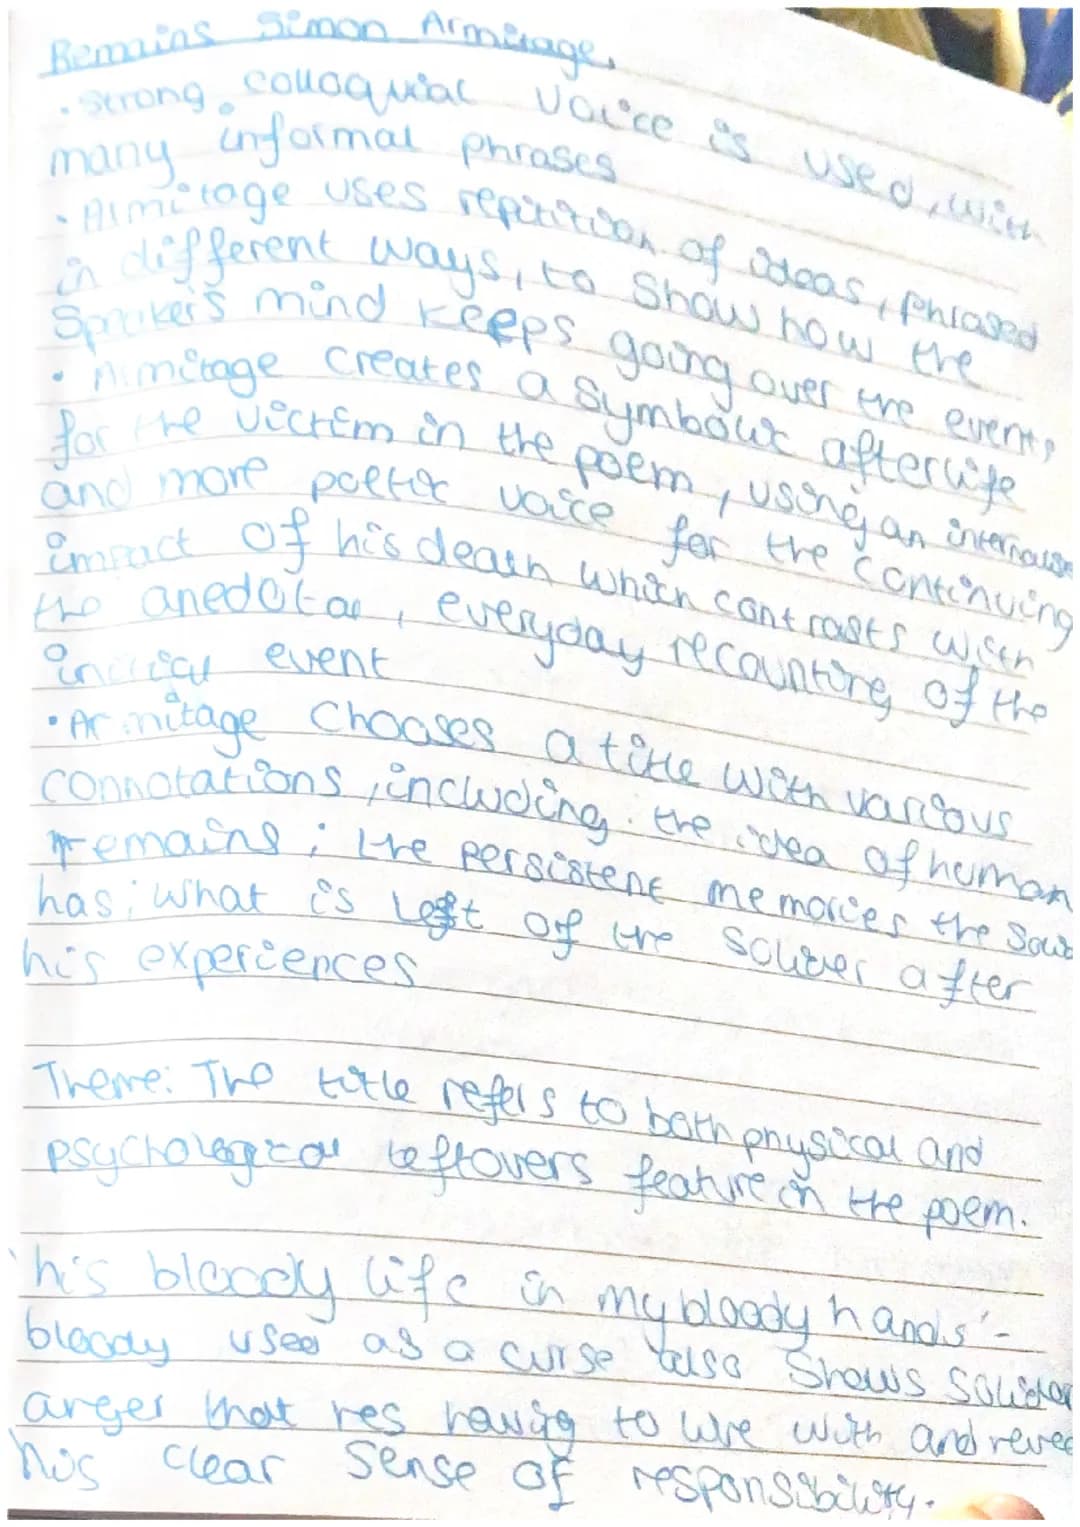 Remains Simon Armitage.
• Strong colloquial voice is used, with
many informal phrases
• Armitage uses repitition of ideas, phrased
in different ways, to show how the
Speaker's mind keeps going over the events
• Armitage creates a symbolic afterlife
for the victim in the poem, using an internalise
and more poetic voice for the continuing
impact of his death which contrasts with
the anedotal, everyday recounting of the
initial event
• Armitage chooses a title with various
connotations, including: the idea of human
remains; the persistent memories the
has; what is left of the soldier after
his experiences
Theme: The title refers to both physical and
psychological leftovers feature in the poem.
'his bloody life in my bloody hands' -
bloody used as a curse also shows
anger that hes having to live with and
his clear sense of responsibility.